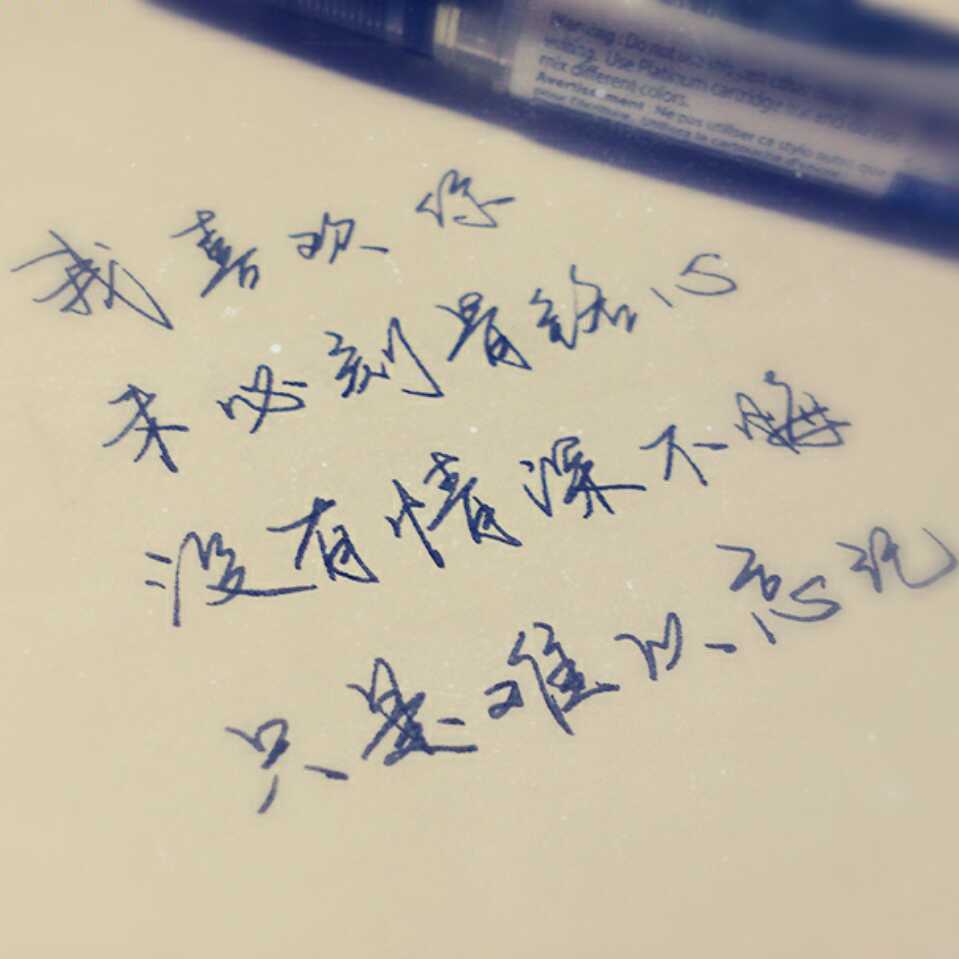 Warning : Do not
writing. Use Platinum cartridge ink and do not
mix different colors.
Avertissement : Ne pas utiliser ce stylo autre que
pour l'écriture, la cartouche d'encre
我喜欢你
未必刻骨铭心
没有情深不悔
只是难以忘记